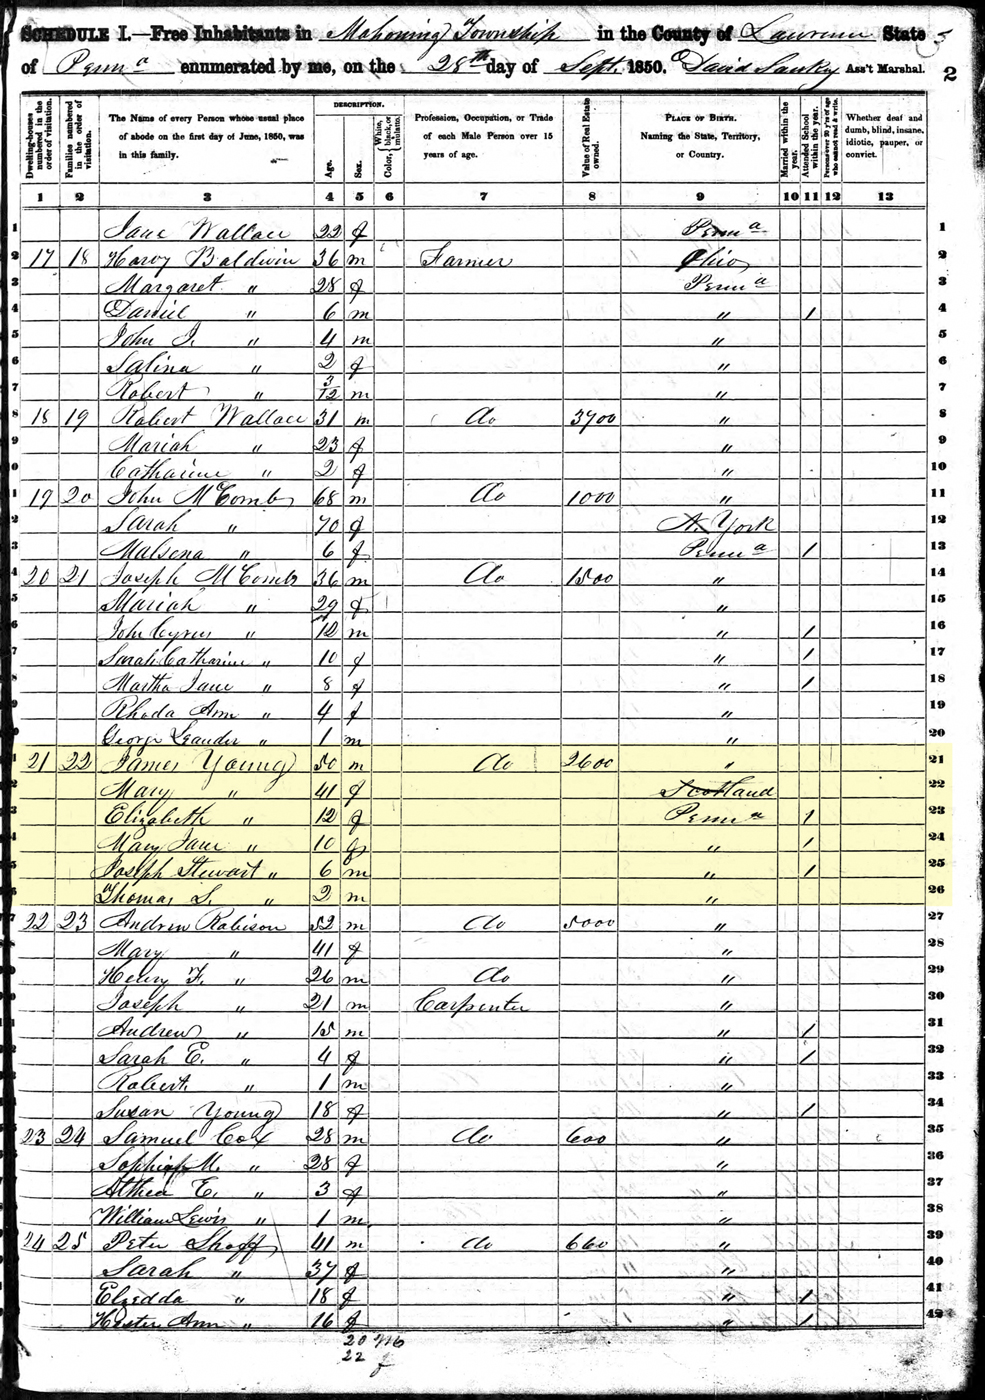 SCHEDULE I.—Free Inhabitants in Mahoning Township in the County of Lawrence State
of Penn a enumerated by me, on the 28th day of Sept. 1850. David Sankey Ass't Marshal.
2
Dwelling-houses numbered in the order of visitation.
Families numbered in the order of visitation.
The Name of every Person whose usual place of abode on the first day of June, 1850, was in this family.
DESCRIPTION.
Age.
Sex.
Color, White, black, or mulatto.
Profession, Occupation, or Trade of each Male Person over 15 years of age.
Value of Real Estate owned.
PLACE OF BIRTH. Naming the State, Territory, or Country.
Married within the year.
Attended School within the year.
Persons over 20 y'rs of age who cannot read & write.
Whether deaf and dumb, blind, insane, idiotic, pauper, or convict.
1 2 3 4 5 6 7 8 9 10 11 12 13
1 Jane Wallace 22 f Penn a 1
2 17 18 Harvy Baldwin 36 m Farmer Ohio 2
3 Margaret " 28 f Penn a 3
4 Daniel " 6 m " 1 4
5 John J. " 4 m " 5
6 Salina " 2 f " 6
7 Robert " 3/12 m " 7
8 18 19 Robert Wallace 31 m do 3700 " 8
9 Mariah " 23 f " 9
0 Catharine " 2 f " 10
1 19 20 John McComb 68 m do 1000 " 11
2 Sarah " 70 f N. York 12
3 Malsena " 6 f Penn a 1 13
4 20 21 Joseph McComb 36 m do 1500 " 14
5 Mariah " 29 f " 15
6 John Cyrus " 12 m " 1 16
7 Sarah Catharine " 10 f " 1 17
8 Martha Jane " 8 f " 1 18
9 Rhoda Ann " 4 f " 19
0 George Leander " 1 m " 20
1 21 22 James Young 50 m do 2600 " 21
2 Mary " 41 f Scotland 22
3 Elizabeth " 12 f Penn a 1 23
4 Mary Jane " 10 f " 1 24
5 Joseph Stewart " 6 m " 1 25
6 Thomas S. " 2 m " 26
7 22 23 Andrew Robison 52 m do 5000 " 27
8 Mary " 41 f " 28
9 Henry F. " 26 m do " 29
0 Joseph " 21 m Carpenter " 30
1 Andrew " 15 m " 1 31
2 Sarah E. " 4 f " 1 32
3 Robert " 1 m " 33
4 Susan Young 18 f " 1 34
5 23 24 Samuel Cox 28 m do 600 " 35
6 Sophiah M. " 28 f " 36
7 Althea E. " 3 f " 37
8 William Lewis " 1 m " 38
9 24 25 Peter Shoff 41 m do 660 " 39
0 Sarah " 37 f " 40
1 Elzedda " 18 f " 1 41
2 Hester Ann " 16 f " 1 42
20 m
22 f